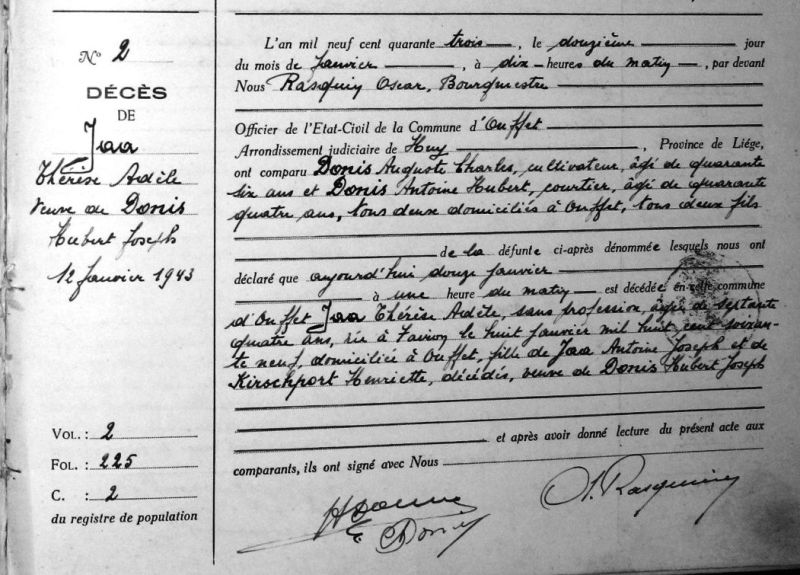 N° 2
DÉCÈS
DE
Jaa
Thérèse Adèle
Veuve de Donis
Hubert Joseph
12 Janvier 1943
VOL. : 2
FOL. : 225
C. : 2
du registre de population
L'an mil neuf cent quarante trois, le douzième jour
du mois de Janvier, à dix heures du matin, par devant
Nous Rasquin Oscar, Bourgmestre
Officier de l'Etat-Civil de la Commune d'Ouffet
Arrondissement judiciaire de Huy, Province de Liége,
ont comparu Donis Auguste Charles, cultivateur, âgé de quarante
six ans et Donis Antoine Hubert, courtier, âgé de quarante
quatre ans, tous deux domiciliés à Ouffet, tous deux fils
de la défunte ci-après dénommée lesquels nous ont
déclaré que aujourd'hui douze janvier
à une heure du matin est décédée en cette commune
d'Ouffet Jaa Thérèse Adèle, sans profession, âgée de septante
quatre ans, née à le huit Janvier mil huit cent soixan-
te neuf, domiciliée à Ouffet, fille de Jaa Antoine Joseph et de
Kirschport Henriette, décédés, veuve de Donis Hubert Joseph
et après avoir donné lecture du présent acte aux
comparants, ils ont signé avec Nous
Donis
O. Rasquin